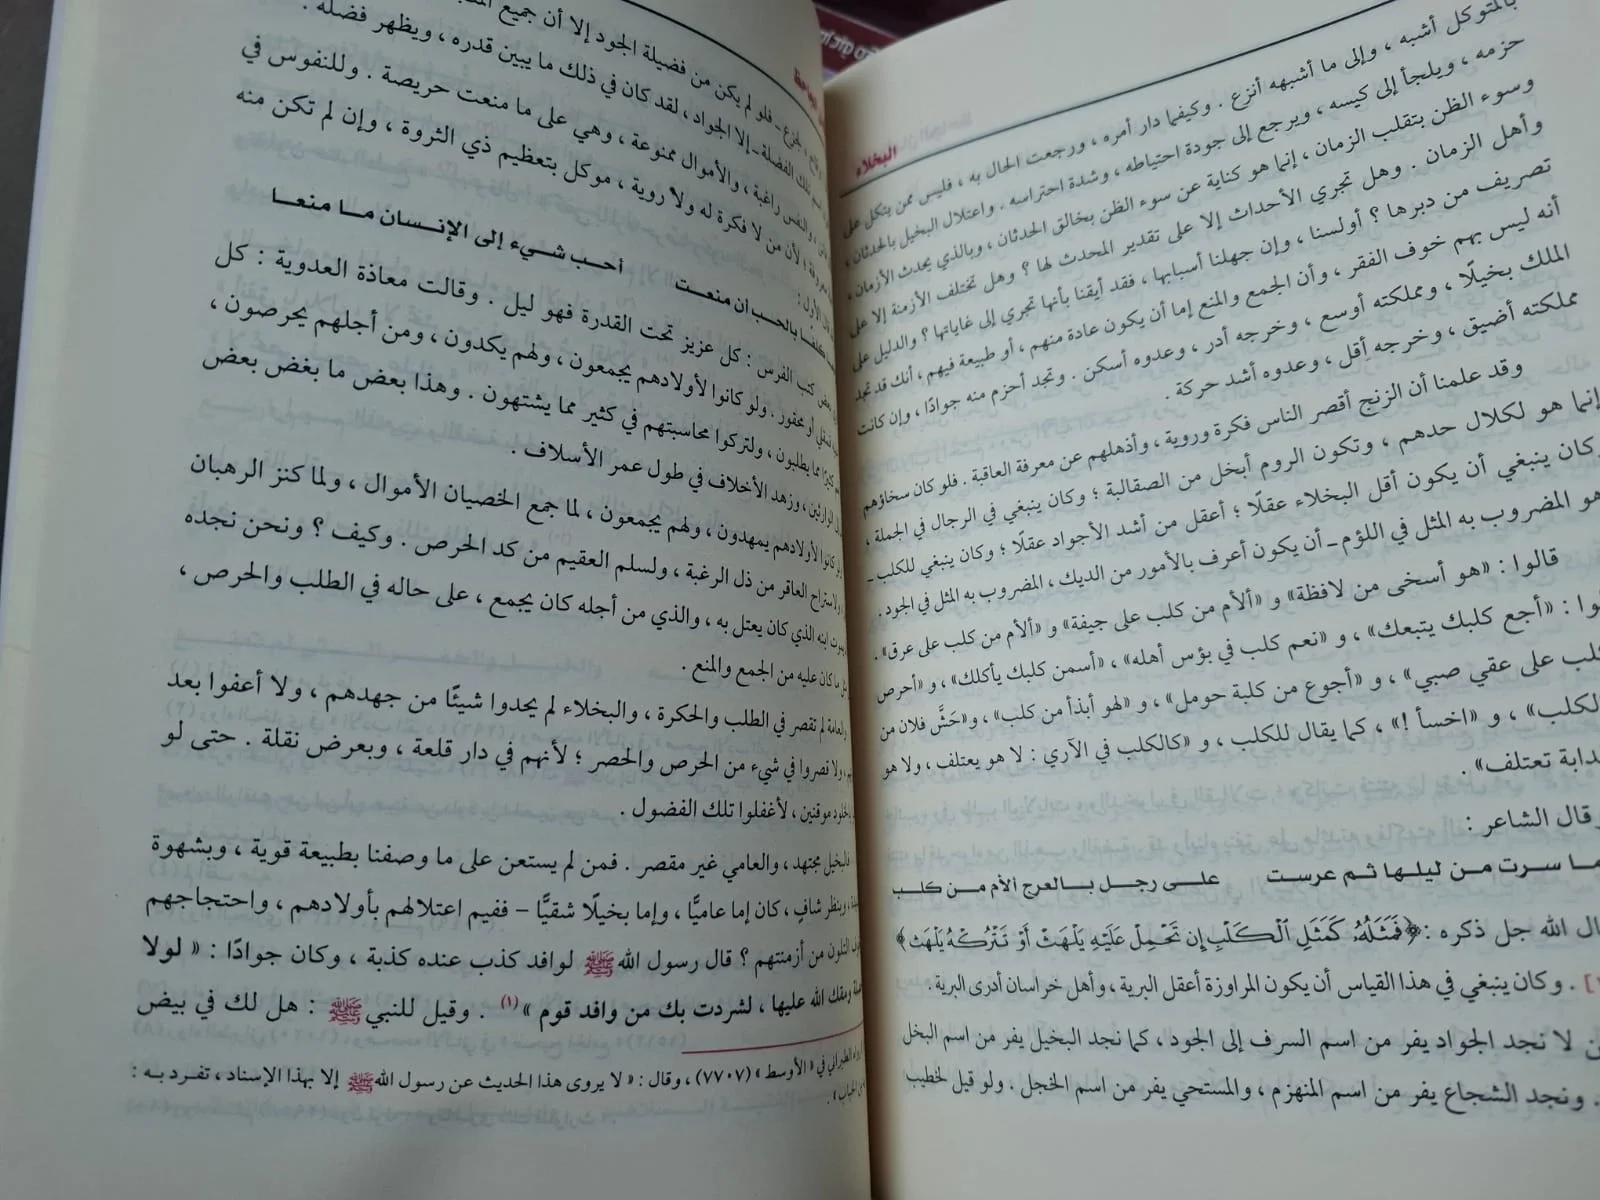 البخلاء
بالمتوكل أشبه ، وإلى ما أشبهه أنزع . وكيفما دار أمره ، ورجعت الحال به ، فليس ممن يتكل على
حزمه ، ويلجأ إلى كيسه ، ويرجع إلى جودة احتياطه ، وشدة احتراسه . واعتلال البخيل بالحدثان ،
وسوء الظن بتقلب الزمان ، إنما هو كناية عن سوء الظن بخالق الحدثان ، وبالذي يحدث الأزمان ،
وأهل الزمان . وهل تجري الأحداث إلا على تقدير المحدث لها ؟ وهل تختلف الأزمنة إلا على
تصريف من دبرها ؟ أولسنا ، وإن جهلنا أسبابها ، فقد أيقنا بأنها تجري إلى غاياتها ؟ والدليل على
أنه ليس بهم خوف الفقر ، وأن الجمع والمنع إما أن يكون عادة منهم ، أو طبيعة فيهم ، أنك قد تجد
الملك بخيلًا ، ومملكته أوسع ، وخرجه أدر ، وعدوه أسكن . وتجد أحزم منه جوادًا ، وإن كانت
مملكته أضيق ، وخرجه أقل ، وعدوه أشد حركة .
وقد علمنا أن الزنج أقصر الناس فكرة وروية ، وأذهلهم عن معرفة العاقبة . فلو كان سخاؤهم
إنما هو لكلال حدهم ، وتكون الروم أبخل من الصقالبة ؛ وكان ينبغي في الرجال في الجملة ،
وكان ينبغي أن يكون أقل البخلاء عقلًا ؛ أعقل من أشد الأجواد عقلًا ؛ وكان ينبغي للكلب -
هو المضروب به المثل في اللؤم - أن يكون أعرف بالأمور من الديك ، المضروب به المثل في الجود .
قالوا : «هو أسخى من لافظة» و «ألأم من كلب على جيفة» و «ألأم من كلب على عرق» .
: «أجع كلبك يتبعك» ، و «نعم كلب في بؤس أهله» ، «أسمن كلبك يأكلك» ، و «أحرص
كلب على عقي صبي» ، و «أجوع من كلبة حومل» ، و «لهو أبذأ من كلب» ، و«حَشَّ فلان من
الكلب» ، و «اخسأ !» ، كما يقال للكلب ، و «كالكلب في الآري : لا هو يعتلف ، ولا هو
الدابة تعتلف» .
وقال الشاعر :
ما سرت من ليلها ثم عرست على رجل بالعرج الأم من كلب
قال الله جل ذكره : ﴿فَمَثَلُهُۥ كَمَثَلِ ٱلۡكَلۡبِ إِن تَحۡمِلۡ عَلَيۡهِ يَلۡهَثۡ أَوۡ تَتۡرُكۡهُ يَلۡهَث﴾
] . وكان ينبغي في هذا القياس أن يكون المراوزة أعقل البرية ، وأهل خراسان أدرى البرية .
لا تجد الجواد يفر من اسم السرف إلى الجود ، كما نجد البخيل يفر من اسم البخل
. ونجد الشجاع يفر من اسم المنهزم ، والمستحي يفر من اسم الخجل . ولو قيل لخطيب
الجزع - فلو لم يكن من فضيلة الجود إلا أن جميع
تلك الفضلة - إلا الجواد ، لقد كان في ذلك ما يبين قدره ، ويظهر فضله .
، والنفس راغبة ، والأموال ممنوعة ، وهي على ما منعت حريصة . وللنفوس في
معروفة ؛ لأن من لا فكرة له ولا روية ، موكل بتعظيم ذي الثروة ، وإن لم تكن منه
الأول :
بالحب ان منعت أحب شيء إلى الإنسان ما منعا
بعض كتب الفرس : كل عزيز تحت القدرة فهو ليل . وقالت معاذة العدوية : كل
أو محقور . ولو كانوا لأولادهم يجمعون ، ولهم يكدون ، ومن أجلهم يحرصون ،
مما يطلبون ، ولتركوا محاسبتهم في كثير مما يشتهون . وهذا بعض ما بغض بعض
الوارثين ، وزهد الأخلاف في طول عمر الأسلاف .
كانوا لأولادهم يمهدون ، ولهم يجمعون ، لما جمع الخصيان الأموال ، ولما كنز الرهبان
ولاستراح العاقر من ذل الرغبة ، ولسلم العقيم من كد الحرص . وكيف ؟ ونحن نجده
يموت ابنه الذي كان يعتل به ، والذي من أجله كان يجمع ، على حاله في الطلب والحرص ،
ما كان عليه من الجمع والمنع .
والعامة لم تقصر في الطلب والحكرة ، والبخلاء لم يحدوا شيئًا من جهدهم ، ولا أعفوا بعد
، ولا قصروا في شيء من الحرص والحصر ؛ لأنهم في دار قلعة ، وبعرض نقلة . حتى لو
بالخلود موقنين ، لأغفلوا تلك الفضول .
فالبخيل مجتهد ، والعامي غير مقصر . فمن لم يستعن على ما وصفنا بطبيعة قوية ، وبشهوة
، وبنظر شافٍ ، كان إما عاميًّا ، وإما بخيلًا شقيًّا - ففيم اعتلالهم بأولادهم ، واحتجاجهم
التلون من أزمنتهم ؟ قال رسول الله ﷺ لوافد كذب عنده كذبة ، وكان جوادًا : « لولا
ومقك الله عليها ، لشردت بك من وافد قوم » (١) . وقيل للنبي ﷺ : هل لك في بيض
رواه الطبراني في « الأوسط » (٧٧٠٧) ، وقال : « لا يروى هذا الحديث عن رسول الله ﷺ إلا بهذا الإسناد ، تفرد به :
الحباب » .